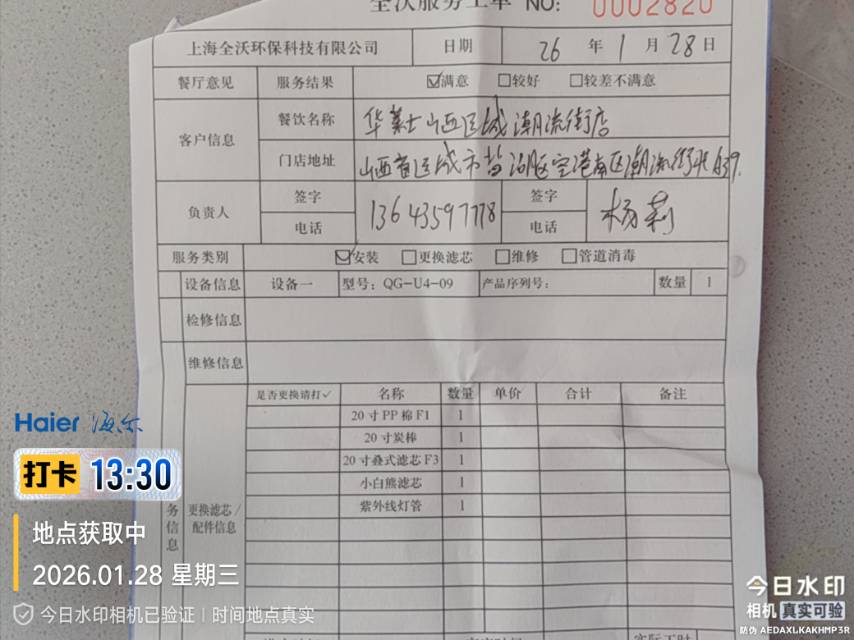 全沃服务工单 NO: 0002820
上海全沃环保科技有限公司 日期 26 年 1 月 28 日
餐厅意见 服务结果 ☑满意 □较好 □较差不满意
客户信息 餐饮名称 华莱士山西运城潮流街店
门店地址 山西省运城市盐湖区空港南区潮流街北A39.
负责人 签字 签字
电话 13643597778 电话 杨莉
服务类别 ☑安装 □更换滤芯 □维修 □管道消毒
设备信息 设备一 型号: QG-U4-09 产品序列号: 数量 1
检修信息
维修信息
是否更换请打✓ 名称 数量 单价 合计 备注
20寸PP棉F1 1
20寸炭棒 1
20寸叠式滤芯F3 1
小白熊滤芯 1
紫外线灯管 1
务信息
更换滤芯/
配件信息
实际工时
Haier 海尔
打卡 13:30
地点获取中
2026.01.28 星期三
今日水印相机已验证 | 时间地点真实
今日水印
相机 真实可验
防伪 AEDAXLKAKHMP3R